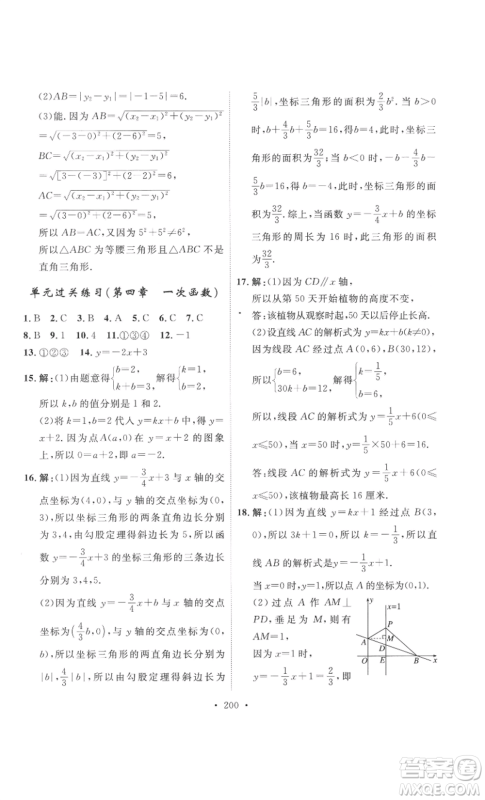 (2)AB=|y₂-y₁|=|-1-5|=6.
(3)能.因为AB=√(x₂-x₁)²+(y₂-y₁)²
=√(-3-0)²+(2-6)²=5,
BC=√(x₂-x₁)²+(y₂-y₁)²
=√[3-(-3)]²+(2-2)²=6,
AC=√(x₂-x₁)²+(y₂-y₁)²
=√(3-0)²+(2-6)²=5,
所以AB=AC,又因为5²+5²≠6²,
所以△ABC为等腰三角形,不是
直角三角形.
单元过关练习(第四章 一次函数)
1.B 2.C 3.B 4.C 5.B 6.C 7.C
8.B 9.1 10.④ 11.①③④ 12.-1
13.①②③ 14.y=-2x+3
15.解:(1)由题意得{b=2, k+b=3, 解得{k=1, b=2.
所以k,b的值分别是1和2.
(2)将k=1,b=2代入y=kx+b中
得y=x+2.因为点A(a,0)在y=x+2的图象
上,所以0=a+2,即a=-2.
16.解:(1)因为直线y=-3/4x+3与x轴的交
点坐标为(4,0),与y轴的交点坐标为(0,3),
所以坐标三角形的两条直角边长分别
为3,4,由勾股定理得斜边长为5,
所以y=-3/4x+3的坐标三角形的三条边长
分别为3,4,5.
(2)因为直线y=-3/4x+b与x轴的交点
坐标为(4/3b,0),与y轴的交点坐标为
(0,b),所以坐标三角形的两直角边长分别为
|b|,4/3|b|,所以由勾股定理得斜边长为
5/3|b|,坐标三角形的面积为2/3b².当b>0
时,b+4/3b+5/3b=16,得b=4,此时,坐标三角
形的面积为32/3;当b<0时,-b-4/3b-
5/3b=16,得b=-4,此时,坐标三角形的面
积为32/3.综上,当函数y=-3/4x+b的坐标三
角形的周长为16时,坐标三角形的面积
为32/3.
17.解:(1)因为CD∥x轴,
所以从第50天开始植物的高度不变.
答:该植物从观察时起,50天以后停止长高.
(2)设直线AC的解析式为y=kx+b(k≠0).
因为直线AC经过点A(0,6),B(30,12),
所以{b=6, 30k+b=12, 解得{k=1/5, b=6.
所以,线段AC的解析式为y=1/5x+6(0≤
x≤50),当x=50时,y=1/5×50+6=16.
答:线段AC的解析式为y=1/5x+6(0≤
x≤50),该植物最高长16厘米.
18.解:(1)因为直线y=kx+1经过点B(3,0),
所以3k+1=0,解得k=-1/3.
所以直线AB的解析式是y=-1/3x+1.
当x=0时,y=1,所以点A(0,1).
(2)过点A作AM⊥
PD,垂足为M,则有
AM=1.
因为x=1时,
y=-1/3x+1=2/3,点P
y
x=1
P
A
M
D
O
E
B
x
· 200 ·
答案圈
MXQE.COM